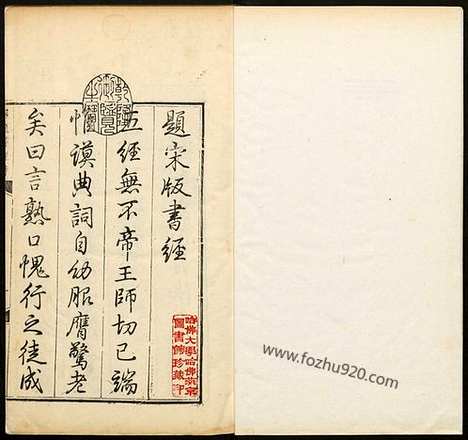 題宋版書經
五經無不帝王師切己端
惟謨典詞自幼服膺驚老
矣曰言熟口愧行之徒成
乾隆御覽之寶
哈佛大學哈佛燕京
圖書館珍藏印
www.fozhu920.com